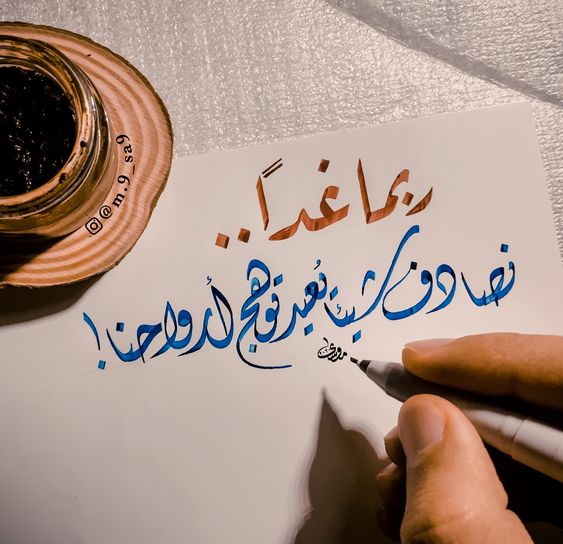 ربما غداً..
نصادف شيئاً يُعيد توهج أرواحنا!
@m.9_sa9